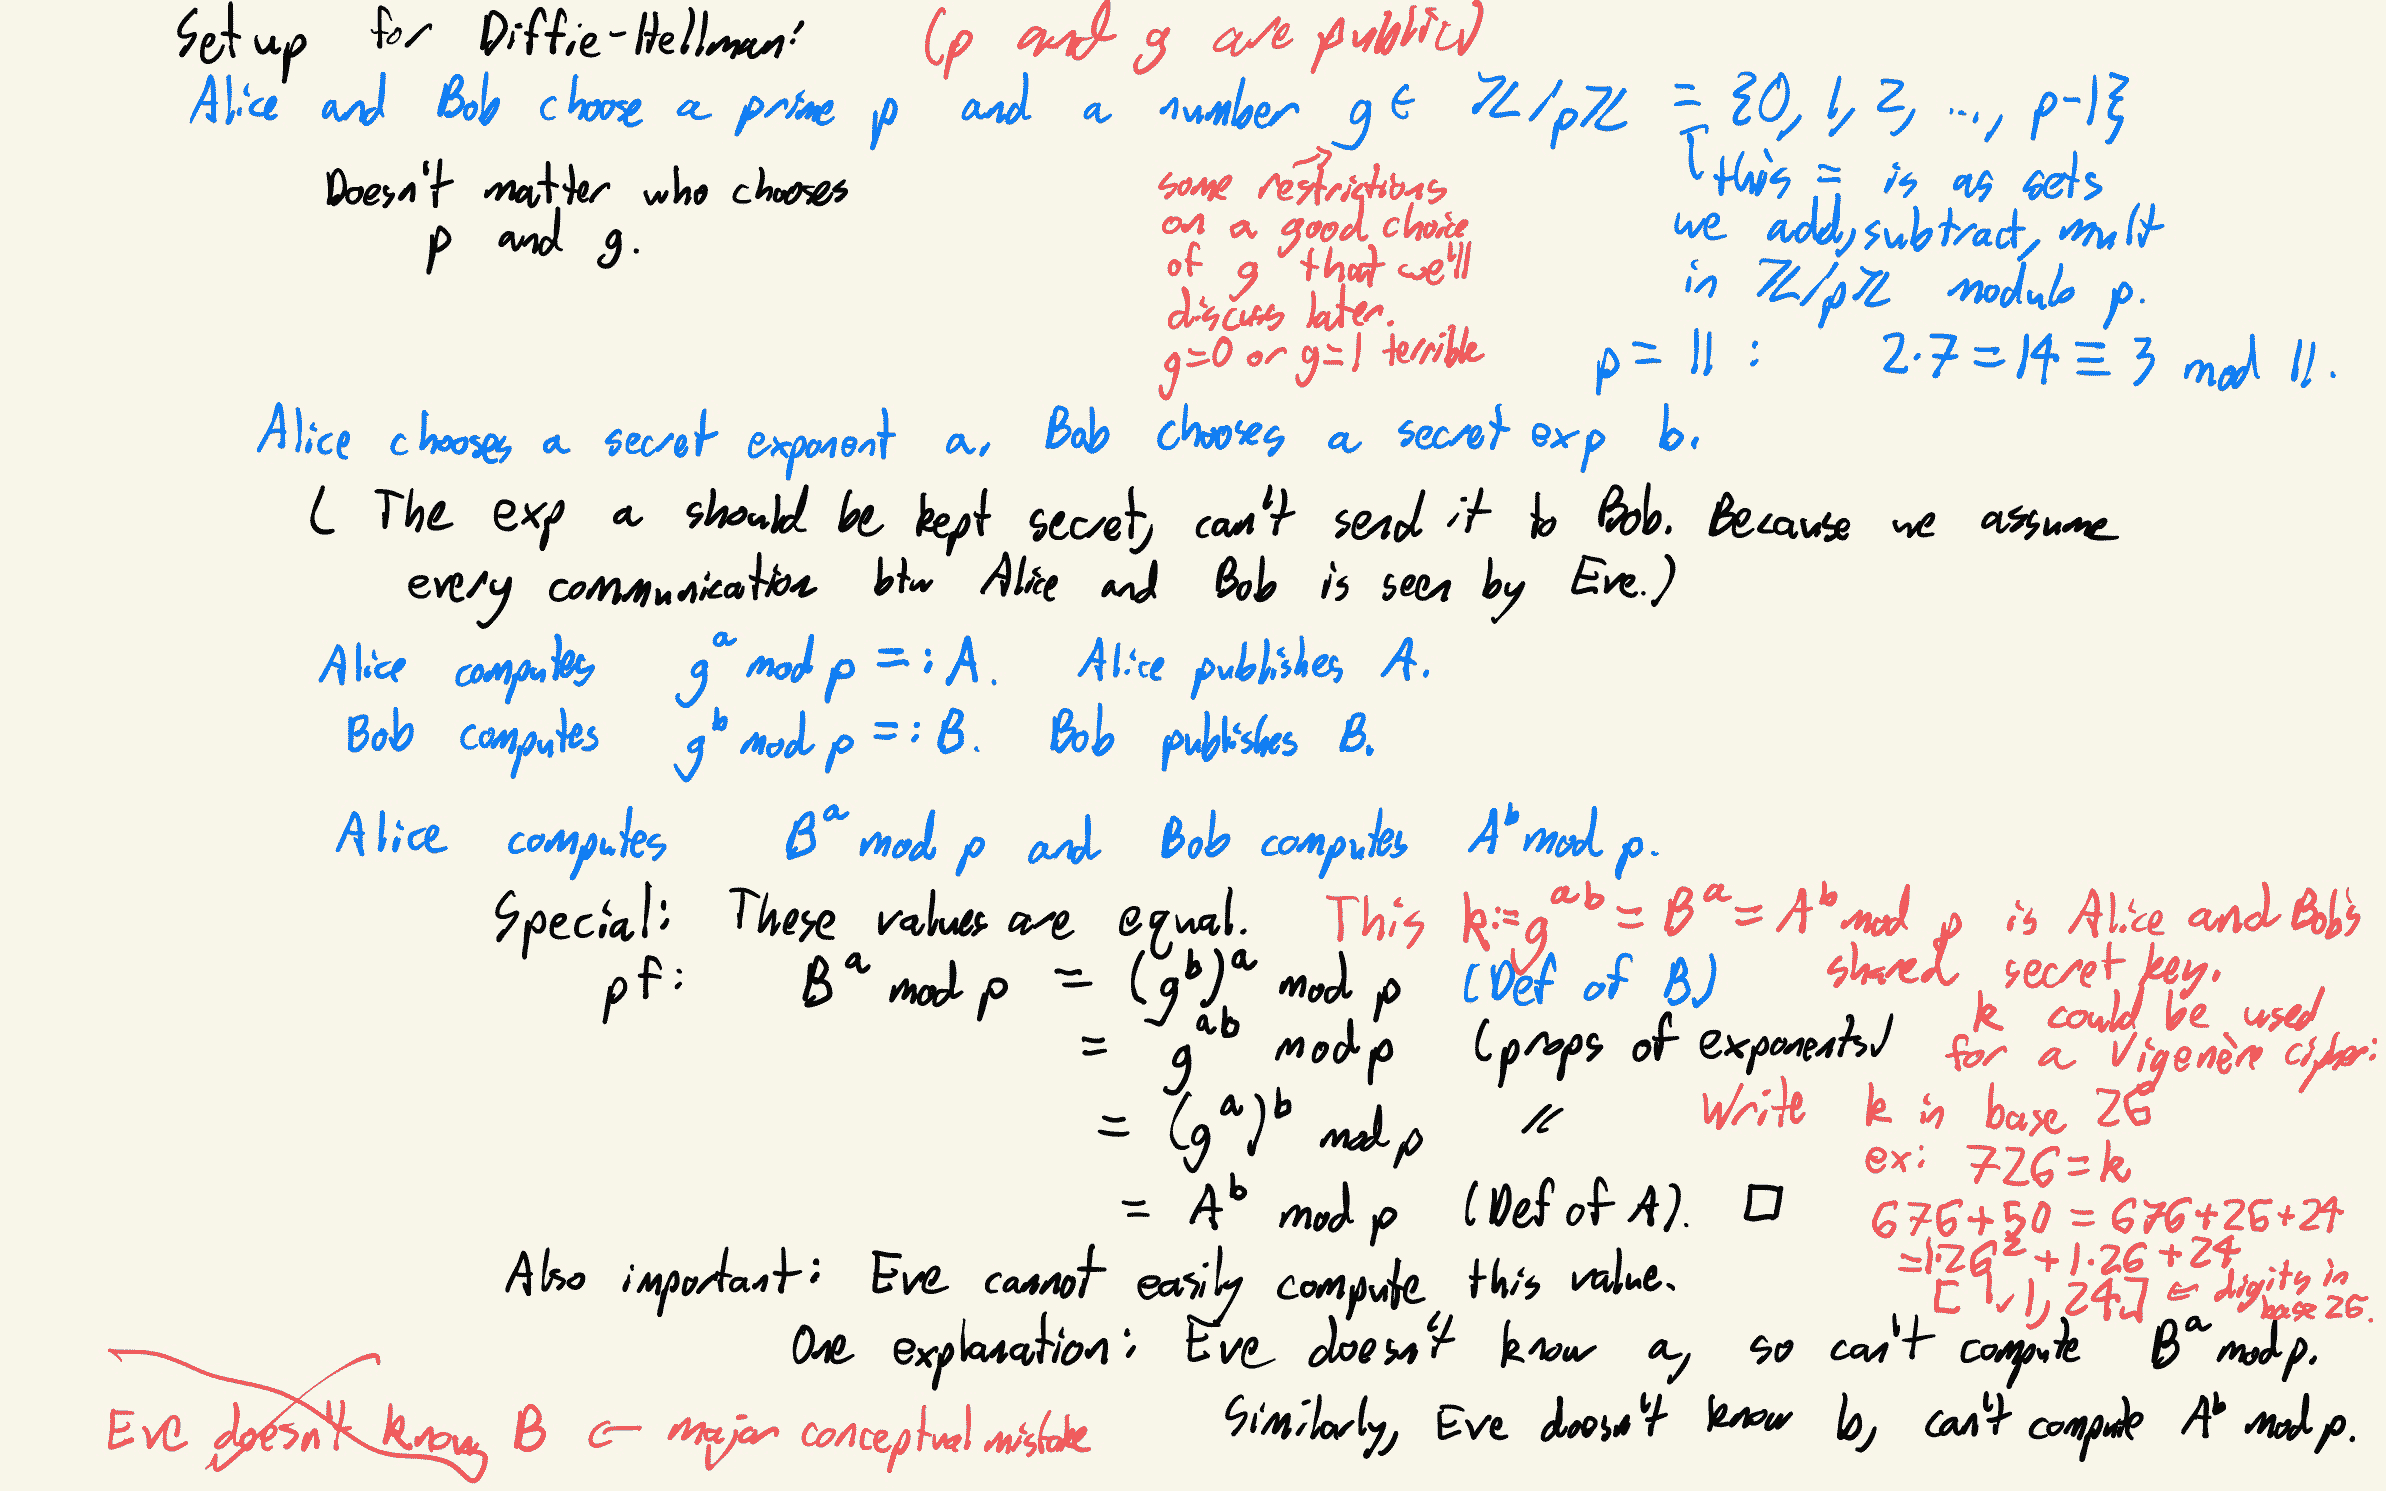 Set up for Diffie-Hellman: (p and g are public)
Alice and Bob choose a prime p and a number g ∈ ℤ/pℤ = {0, 1, 2, ..., p-1}
Doesn't matter who chooses
p and g.
some restrictions
on a good choice
of g that we'll
discuss later.
g=0 or g=1 terrible
this = is as sets
we add, subtract, mult
in ℤ/pℤ modulo p.
p = 11 : 2·7 = 14 ≡ 3 mod 11.
Alice chooses a secret exponent a, Bob chooses a secret exp b.
( The exp a should be kept secret, can't send it to Bob. Because we assume
every communication btw Alice and Bob is seen by Eve.)
Alice computes g^a mod p =: A. Alice publishes A.
Bob computes g^b mod p =: B. Bob publishes B.
Alice computes B^a mod p and Bob computes A^b mod p.
Special: These values are equal.
This k:=g^ab = B^a = A^b mod p is Alice and Bob's
shared secret key.
pf: B^a mod p = (g^b)^a mod p (Def of B)
= g^ab mod p (props of exponents)
= (g^a)^b mod p "
= A^b mod p (Def of A). □
k could be used
for a Vigenère cipher:
Write k in base 26
ex: 726 = k
676+50 = 676+26+24
=1·26²+1·26+24
[1,1,24] ← digits in
base 26.
Also important: Eve cannot easily compute this value.
One explanation: Eve doesn't know a, so can't compute B^a mod p.
Similarly, Eve doesn't know b, can't compute A^b mod p.
Eve doesn't know B ← major conceptual mistake